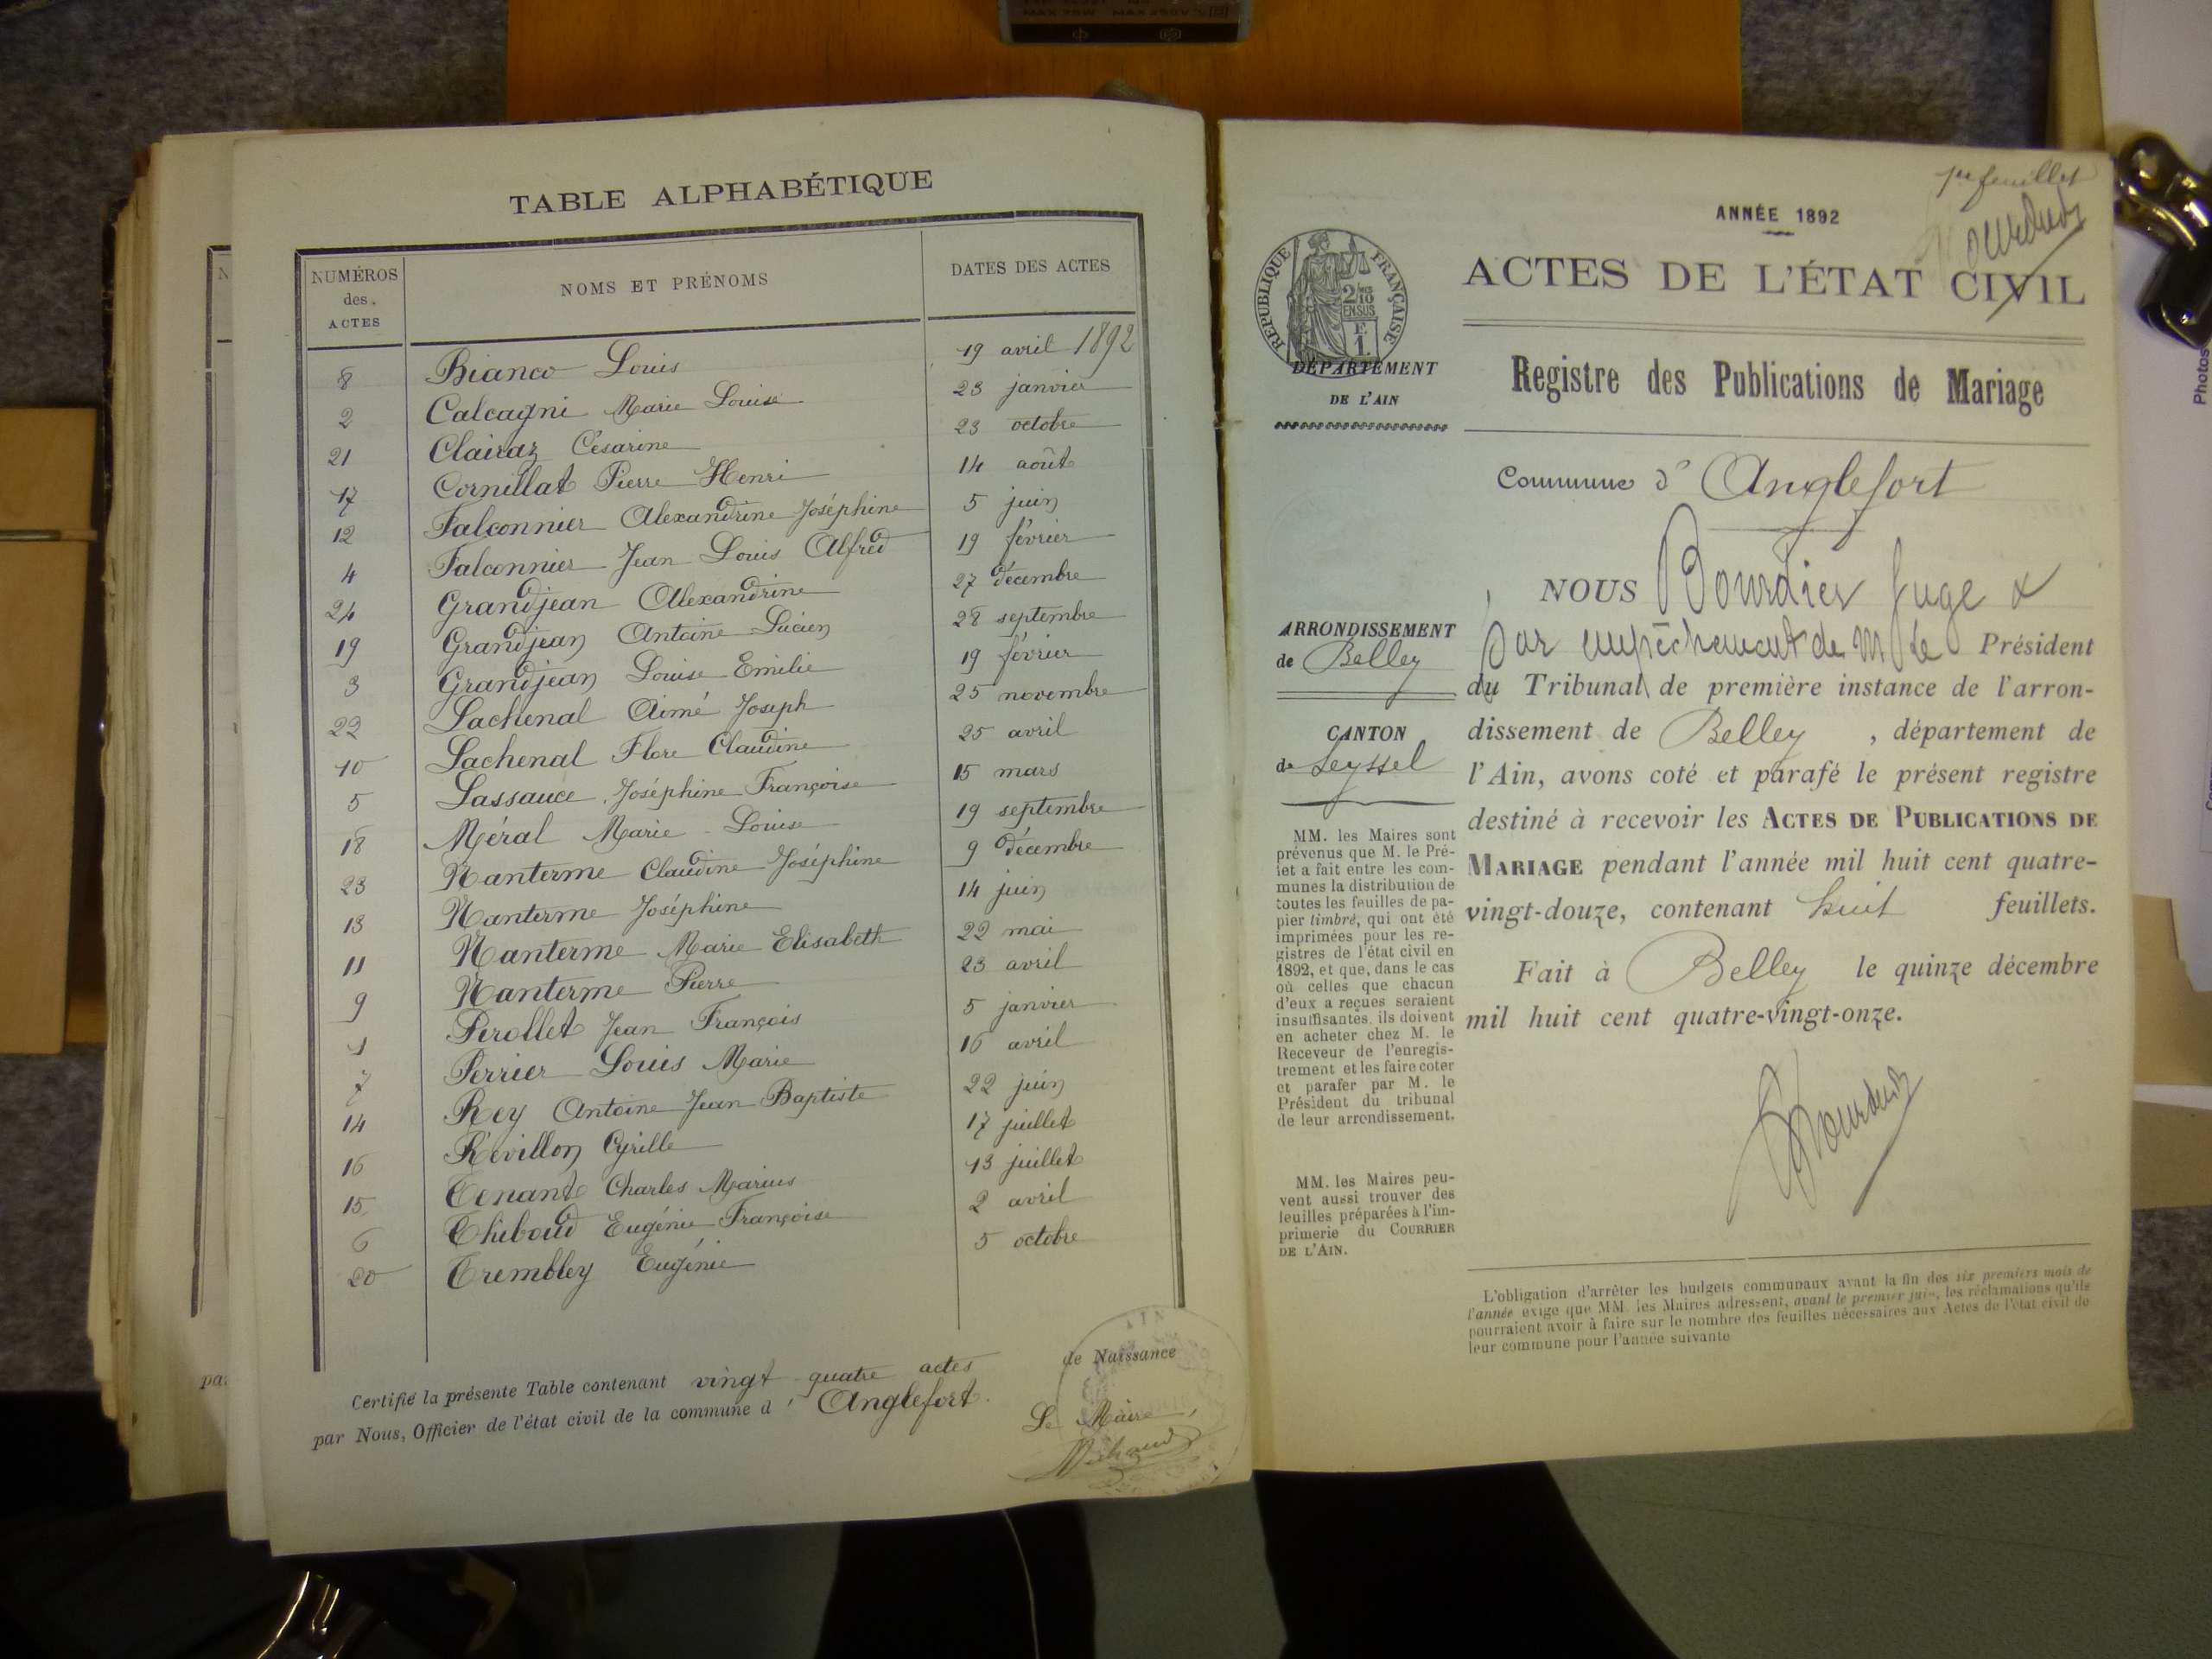 TABLE ALPHABÉTIQUE
NUMÉROS des ACTES NOMS ET PRÉNOMS DATES DES ACTES
8 Bianco Louis 19 avril 1892
2 Calcagni Marie Louise 23 janvier
21 Clairaz Césarine 23 octobre
17 Cornillat Pierre Henri 14 août
12 Falconnier Alexandrine Joséphine 5 juin
4 Falconnier Jean Louis Alfred 19 février
24 Grandjean Alexandrine 27 décembre
19 Grandjean Antoine Lucien 28 septembre
3 Grandjean Louise Emilie 19 février
22 Lachenal Aimé Joseph 25 novembre
10 Lachenal Flore Claudine 25 avril
5 Lassauce Joséphine Françoise 15 mars
18 Méral Marie Louise 19 septembre
23 Nanterme Claudine Joséphine 9 décembre
13 Nanterme Joséphine 14 juin
11 Nanterme Marie Elisabeth 22 mai
9 Nanterme Pierre 23 avril
1 Perollet Jean François 5 janvier
7 Perrier Louis Marie 16 avril
14 Rey Antoine Jean Baptiste 22 juin
16 Révillon Cyrille 17 juillet
15 Tenand Charles Marius 13 juillet
6 Thiboud Eugénie Françoise 2 avril
20 Trembley Eugénie 5 octobre
Certifié la présente Table contenant vingt quatre actes de Naissance
par Nous, Officier de l'état civil de la commune d' Anglefort.
Le Maire,
1er feuillet
ANNÉE 1892
ACTES DE L'ÉTAT CIVIL
RÉPUBLIQUE FRANÇAISE
2/10 EN SUS
F. 1.
DÉPARTEMENT
DE L'AIN
Registre des Publications de Mariage
Commune d' Anglefort
ARRONDISSEMENT
de Belley
CANTON
de Seyssel
NOUS Bourdier Juge
par empêchement de M. le Président
du Tribunal de première instance de l'arron-
dissement de Belley , département de
l'Ain, avons coté et parafé le présent registre
destiné à recevoir les ACTES DE PUBLICATIONS DE
MARIAGE pendant l'année mil huit cent quatre-
vingt-douze, contenant huit feuillets.
Fait à Belley le quinze décembre
mil huit cent quatre-vingt-onze.
MM. les Maires sont
prévenus que M. le Pré-
fet a fait entre les com-
munes la distribution de
toutes les feuilles de pa-
pier timbré, qui ont été
imprimées pour les re-
gistres de l'état civil en
1892, et que, dans le cas
où celles que chacun
d'eux a reçues seraient
insuffisantes, ils doivent
en acheter chez M. le
Receveur de l'enregis-
trement et les faire coter
et parafer par M. le
Président du tribunal
de leur arrondissement.
MM. les Maires peu-
vent aussi trouver des
feuilles préparées à l'im-
primerie du COURRIER
DE L'AIN.
L'obligation d'arrêter les budgets communaux avant la fin des six premiers mois de
l'année exige que MM. les Maires adressent, avant le premier juin, les réclamations qu'ils
pourraient avoir à faire sur le nombre des feuilles nécessaires aux Actes de l'état civil de
leur commune pour l'année suivante
Photos